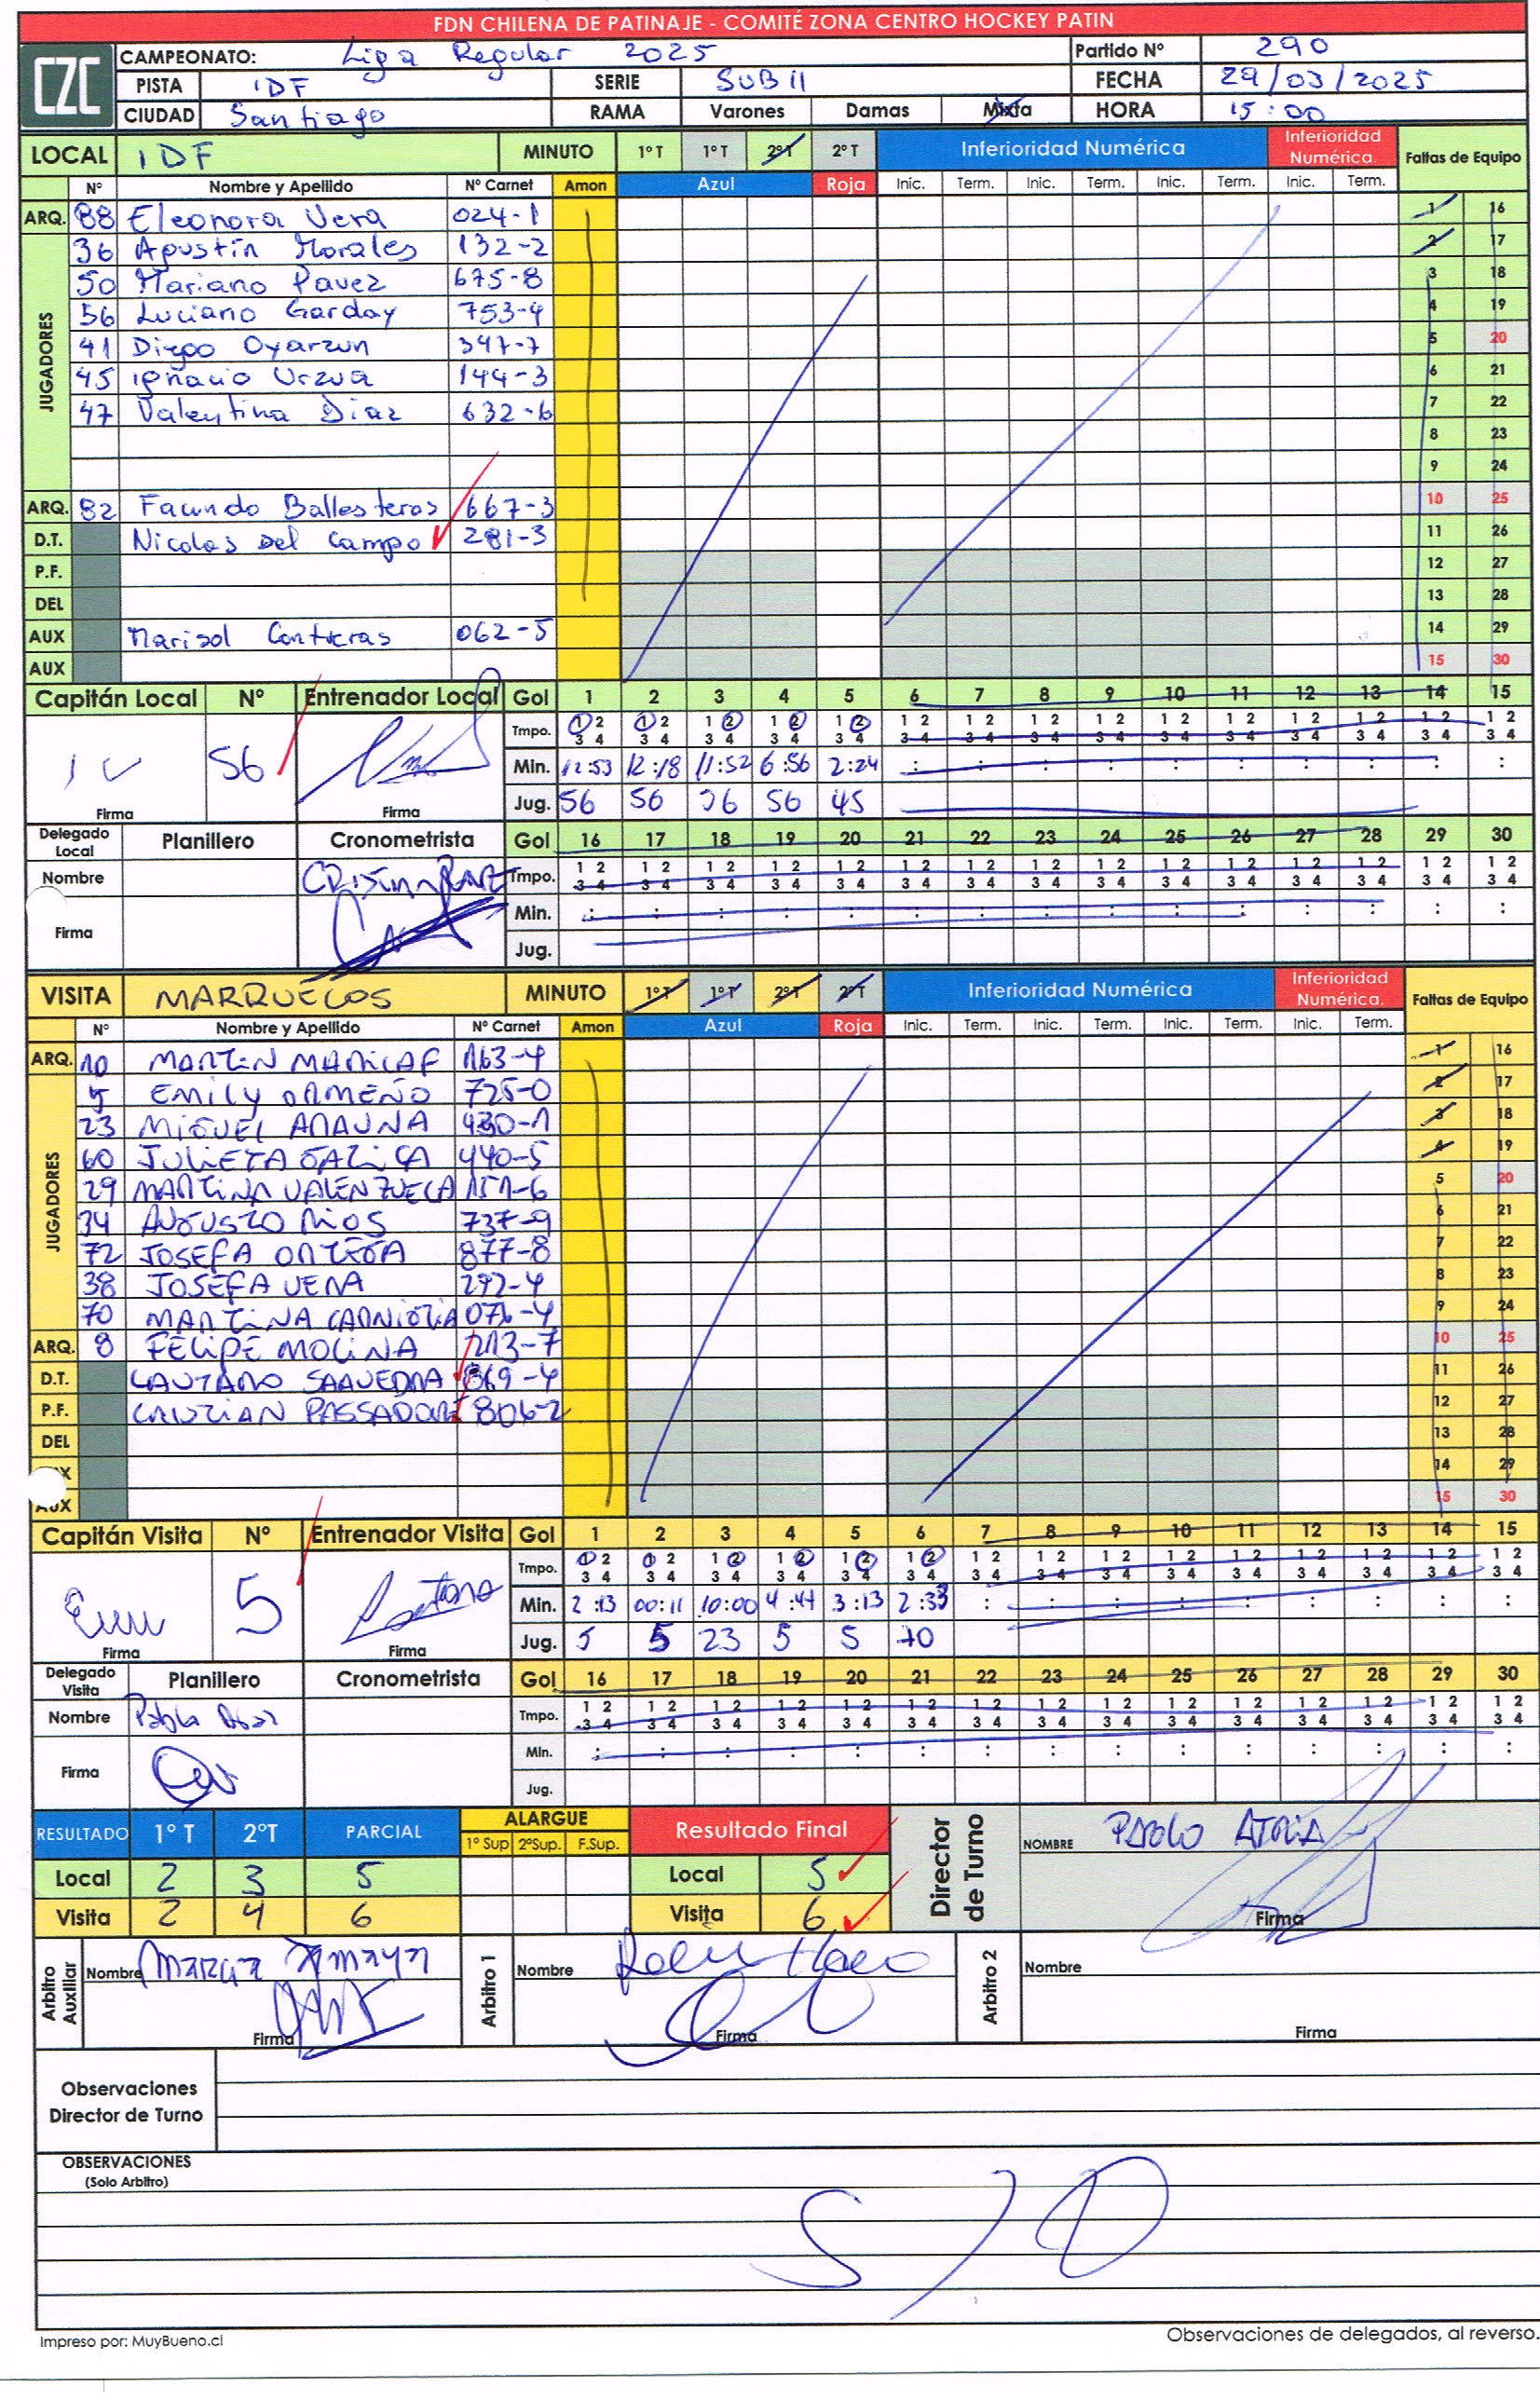 FDN CHILENA DE PATINAJE - COMITÉ ZONA CENTRO HOCKEY PATIN
CZC
CAMPEONATO: Liga Regular 2025 Partido Nº 290
PISTA IDF SERIE SUB 11 FECHA 29/03/2025
CIUDAD Santiago RAMA Varones Damas Mixta HORA 15:00
LOCAL IDF MINUTO 1º T 1º T 2º T 2º T Inferioridad Numérica Inferioridad Numérica. Faltas de Equipo
Nº Nombre y Apellido Nº Carnet Amon Azul Roja Inic. Term. Inic. Term. Inic. Term. Inic. Term.
ARQ. 88 Eleonora Vera 024-1 1 16
JUGADORES
36 Agustín Morales 132-2 2 17
50 Mariano Pavez 675-8 3 18
56 Luciano Garday 753-4 4 19
41 Diego Oyarzun 347-7 5 20
45 Ignacio Urzua 144-3 6 21
47 Valentina Diaz 632-6 7 22
8 23
9 24
ARQ. 82 Facundo Ballesteros 667-3 10 25
D.T. Nicolas Del Campo 281-3 11 26
P.F. 12 27
DEL 13 28
AUX Marisol Contreras 062-5 14 29
AUX 15 30
Capitán Local Nº Entrenador Local Gol 1 2 3 4 5 6 7 8 9 10 11 12 13 14 15
Tmpo. 1 2 3 4 1 2 3 4 1 2 3 4 1 2 3 4 1 2 3 4 1 2 3 4 1 2 3 4 1 2 3 4 1 2 3 4 1 2 3 4 1 2 3 4 1 2 3 4 1 2 3 4 1 2 3 4 1 2 3 4
56 Min. 12:53 12:18 11:52 6:56 2:24 : : : : : : : : : :
Firma Firma Jug. 56 56 36 56 45
Delegado Local Planillero Cronometrista Gol 16 17 18 19 20 21 22 23 24 25 26 27 28 29 30
Nombre Tmpo. 1 2 3 4 1 2 3 4 1 2 3 4 1 2 3 4 1 2 3 4 1 2 3 4 1 2 3 4 1 2 3 4 1 2 3 4 1 2 3 4 1 2 3 4 1 2 3 4 1 2 3 4 1 2 3 4 1 2 3 4
Firma Min. : : : : : : : : : : : : : : :
Jug.
VISITA MARRUECOS MINUTO 1º T 1º T 2º T 2º T Inferioridad Numérica Inferioridad Numérica. Faltas de Equipo
Nº Nombre y Apellido Nº Carnet Amon Azul Roja Inic. Term. Inic. Term. Inic. Term. Inic. Term.
ARQ. 10 MARTIN MARILAF 163-4 1 16
JUGADORES
5 EMILY ORMEÑO 725-0 2 17
23 MIGUEL ARAUNA 430-1 3 18
60 JULIETA GAZICA 440-5 4 19
29 MARTINA VALENZUELA 151-6 5 20
34 AUGUSTO RIOS 737-9 6 21
72 JOSEFA ORTEGA 877-8 7 22
38 JOSEFA VERA 292-4 8 23
70 MARTINA 071-4 9 24
ARQ. 8 FELIPE MOLINA 213-7 10 25
D.T. LAUTARO SAAVEDRA 869-4 11 26
P.F. CRISTIAN PASSADORE 806-2 12 27
DEL 13 28
14 29
AUX 15 30
Capitán Visita Nº Entrenador Visita Gol 1 2 3 4 5 6 7 8 9 10 11 12 13 14 15
Tmpo. 1 2 3 4 1 2 3 4 1 2 3 4 1 2 3 4 1 2 3 4 1 2 3 4 1 2 3 4 1 2 3 4 1 2 3 4 1 2 3 4 1 2 3 4 1 2 3 4 1 2 3 4 1 2 3 4 1 2 3 4
5 Min. 2:13 00:11 10:00 4:44 3:13 2:33 : : : : : : : : :
Firma Firma Jug. 5 5 23 5 5 70
Delegado Visita Planillero Cronometrista Gol 16 17 18 19 20 21 22 23 24 25 26 27 28 29 30
Nombre Tmpo. 1 2 3 4 1 2 3 4 1 2 3 4 1 2 3 4 1 2 3 4 1 2 3 4 1 2 3 4 1 2 3 4 1 2 3 4 1 2 3 4 1 2 3 4 1 2 3 4 1 2 3 4 1 2 3 4 1 2 3 4
Firma Min. : : : : : : : : : : : : : : :
Jug.
RESULTADO 1º T 2ºT PARCIAL ALARGUE 1º Sup 2ºSup. F.Sup. Resultado Final Director de Turno NOMBRE PABLO ATRIA
Local 2 3 5 Local 5
Visita 2 4 6 Visita 6 Firma
Arbitro Auxiliar Nombre MARCIA AMAYA Arbitro 1 Nombre Arbitro 2 Nombre
Firma Firma Firma
Observaciones
Director de Turno
OBSERVACIONES
(Solo Arbitro)
S/O
Impreso por: MuyBueno.cl Observaciones de delegados, al reverso.